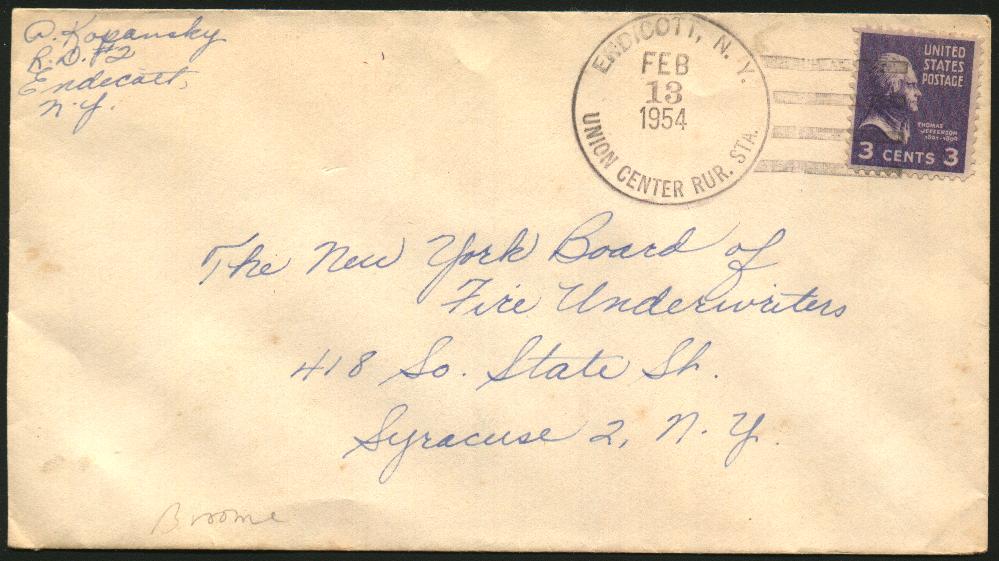 A. Kopansky
R.D. #2
Endecott,
N.Y.
ENDICOTT, N.Y.
FEB
13
1954
UNION CENTER RUR. STA.
UNITED
STATES
POSTAGE
THOMAS
JEFFERSON
1801-1809
3 CENTS 3
The New York Board of
Fire Underwriters
418 So. State St.
Syracuse 2, N.Y.
Broome